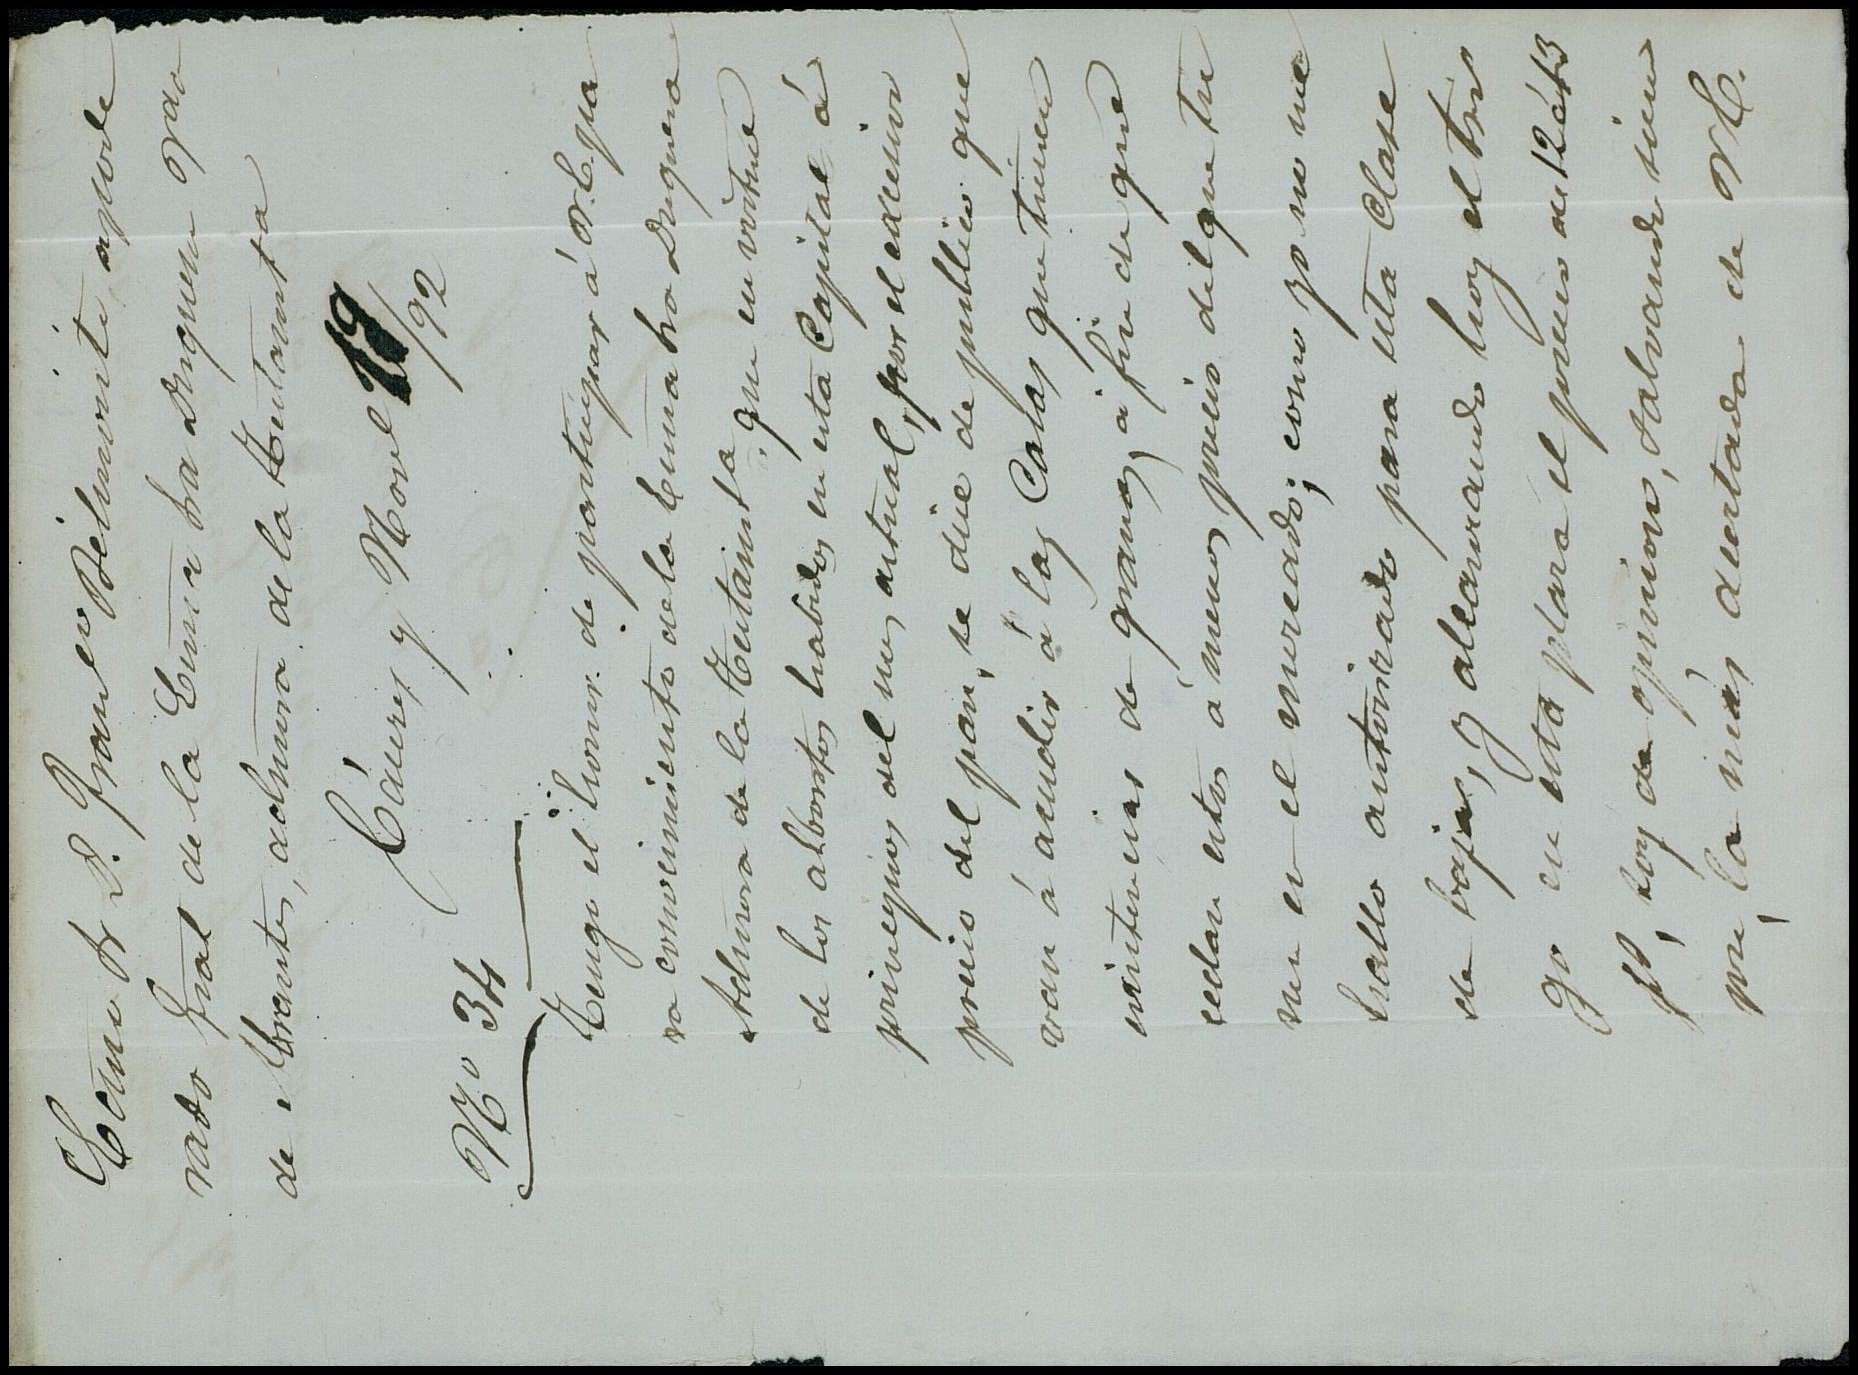 Excmo Sr D. Franco Belmonte, apode
rado gral de la Excma Sra Duquesa Vda
de Abrantes, admora de la Testamta
Cáceres y Novre 19/92
No 34
Tengo el honor de participar á V.E. pa
su conocimiento y de la Excma Sra Duquesa
Admora de la Testamta, que en virtud
de los alborotos habidos en esta Capital á
principios del mes actual, por el excesivo
precio del pan, se dice de publico que
van á acudir á las Casas que tienen
existencias de granos, á fin de que
cedan estos á menos precio del que tie
ne en el mercado; como yo no me
hallo autorizado para esta clase
de bajas, y alcanzando hoy el tri
go en esta plaza el precio de 12 á 13
ps, soy de opinion, salvando siem
pre, la más acertada de V.E.